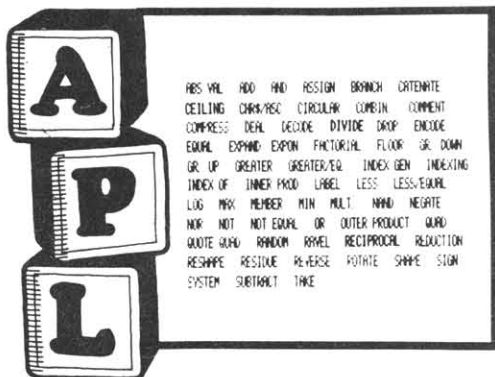 A
P
L
ABS VAL ADD AND ASSIGN BRANCH CATENATE
CEILING CHR$/ASC CIRCULAR COMBIN. COMMENT
COMPRESS DEAL DECODE DIVIDE DROP ENCODE
EQUAL EXPAND EXPON FACTORIAL FLOOR GR DOWN
GR UP GREATER GREATER/EQ. INDEX GEN INDEXING
INDEX OF INNER PROD LABEL LESS LESS/EQUAL
LOG MAX MEMBER MIN MULT NAND NEGATE
NOR NOT NOT EQUAL OR OUTER PRODUCT QUAD
QUOTE QUAD RANDOM RAVEL RECIPROCAL REDUCTION
RESHAPE RESIDUE REVERSE ROTATE SHAPE SIGN
SYSTEM SUBTRACT TAKE